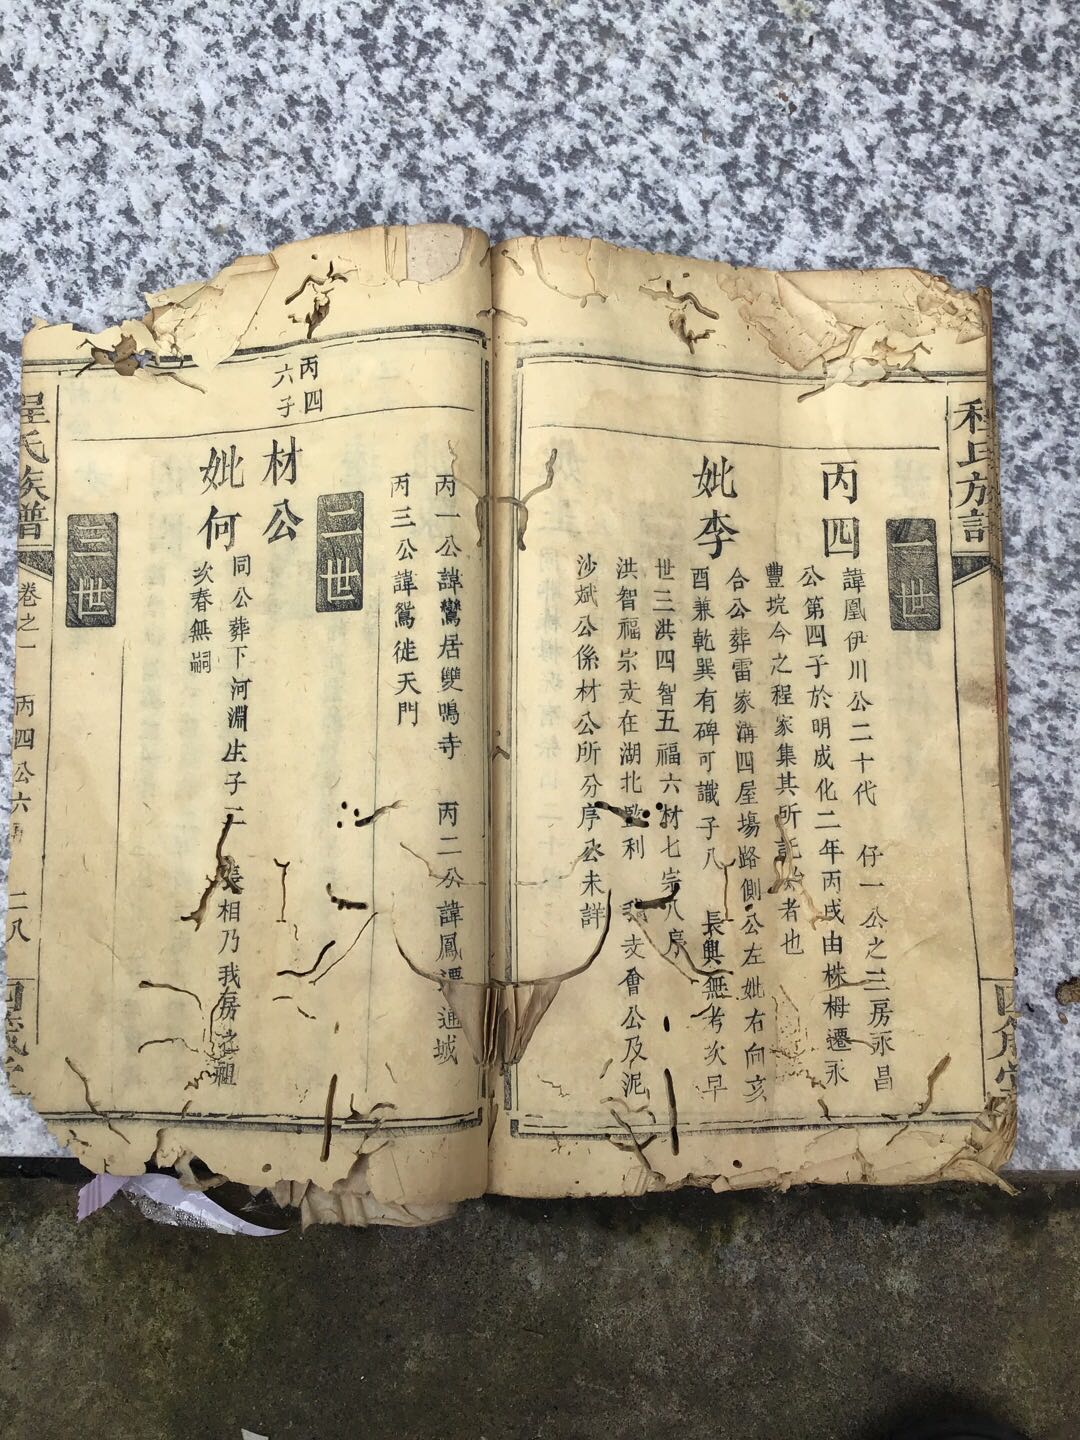 程氏族譜
一世
丙四
諱凰伊川公二十代 仔一公之三房永昌
公第四子於明成化二年丙戌由株栂遷永
豐垸今之程家集其所託始者也
妣李
合公葬雷家溝四屋場路側公左妣右向亥
酉兼乾巽有碑可識子八 長興無考次早
世三洪四智五福六材七宗八序
洪智福宗支在湖北監利 支會公及泥
沙斌公係材公所分序公未詳
丙一公諱鸞居雙鳴寺 丙二公諱鳳遷通城
丙三公諱鴛徙天門
丙四
六子
二世
材公
妣何
同公葬下河淵生子二 長相乃我房之祖
次春無嗣
三世
程氏族譜
卷之一
丙四公六
二八